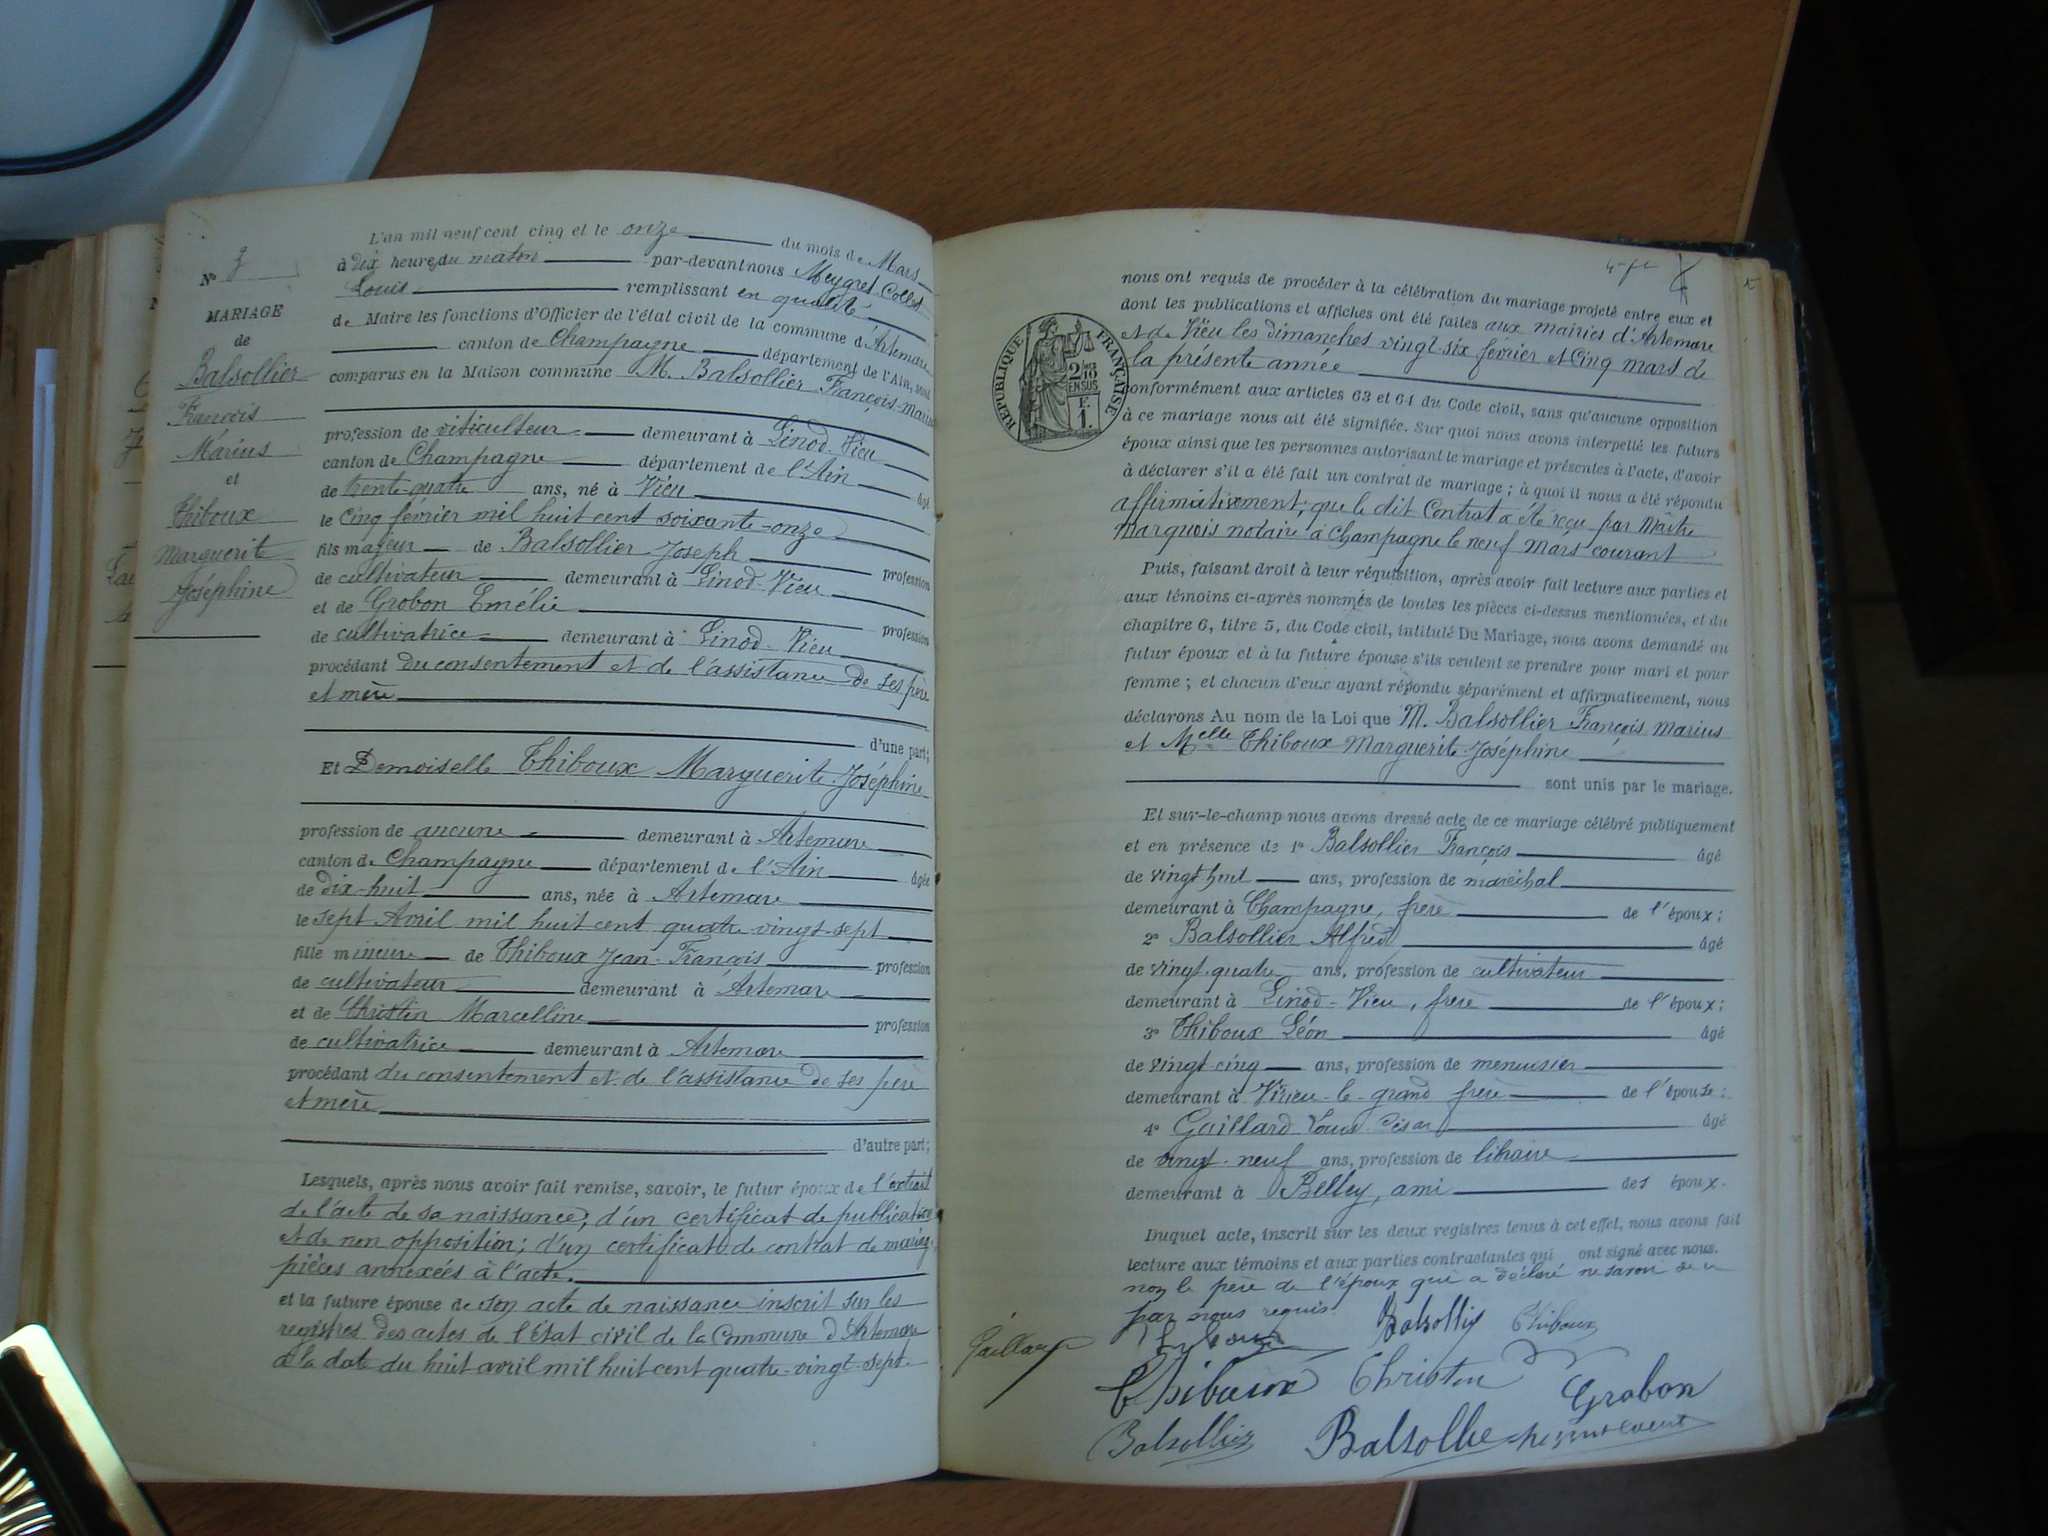 N° 3
MARIAGE
de
Balsollier
François
Marius
et
Thiboux
Marguerite
Joséphine
L'an mil neuf cent cinq et le onze du mois de Mars
à dix heures du matin par-devant nous Meygret-Collet
Louis remplissant en qualité
de Maire les fonctions d'Officier de l'état civil de la commune d'Artemare
canton de Champagne département de l'Ain, sont
comparus en la Maison commune M. Balsollier François-Marius
profession de viticulteur demeurant à Linod-Vieu
canton de Champagne département de l'Ain âgé
de trente-quatre ans, né à Vieu
le cinq février mil huit cent soixante-onze
fils majeur de Balsollier Joseph profession
de cultivateur demeurant à Linod-Vieu
et de Grobon Emélie profession
de cultivatrice demeurant à Linod-Vieu
procédant du consentement et de l'assistance de ses père
et mère
d'une part;
Et Demoiselle Thiboux Marguerite-Joséphine
profession de aucune demeurant à Artemare
canton de Champagne département de l'Ain âgée
de dix-huit ans, née à Artemare
le sept Avril mil huit cent quatre-vingt-sept
fille mineure de Thiboux Jean-François profession
de cultivateur demeurant à Artemare
et de Christin Marcelline profession
de cultivatrice demeurant à Artemare
procédant du consentement et de l'assistance de ses père
et mère
d'autre part;
Lesquels, après nous avoir fait remise, savoir, le futur époux de l'extrait
de l'acte de sa naissance; d'un certificat de publication
et de non opposition; d'un certificat de contrat de mariage
pièces annexées à l'acte.
et la future épouse de son acte de naissance inscrit sur les
registres des actes de l'Etat civil de la Commune d'Artemare
à la date du huit avril mil huit cent quatre-vingt-sept.
nous ont requis de procéder à la célébration du mariage projeté entre eux et
dont les publications et affiches ont été faites aux mairies d'Artemare
et de Vieu les dimanches vingt-six février et cinq mars de
la présente année
RÉPUBLIQUE FRANÇAISE
2/10 EN SUS
F.
1.
conformément aux articles 63 et 64 du Code civil, sans qu'aucune opposition
à ce mariage nous ait été signifiée. Sur quoi nous avons interpellé les futurs
époux ainsi que les personnes autorisant le mariage et présentes à l'acte, d'avoir
à déclarer s'il a été fait un contrat de mariage; à quoi il nous a été répondu
affirmativement; que le dit Contrat a été reçu par Maître
Marquois notaire à Champagne le neuf Mars courant
Puis, faisant droit à leur réquisition, après avoir fait lecture aux parties et
aux témoins ci-après nommés de toutes les pièces ci-dessus mentionnées, et du
chapitre 6, titre 5, du Code civil, intitulé Du Mariage, nous avons demandé au
futur époux et à la future épouse s'ils veulent se prendre pour mari et pour
femme; et chacun d'eux ayant répondu séparément et affirmativement, nous
déclarons Au nom de la Loi que M. Balsollier François Marius
et Melle Thiboux Marguerite-Joséphine
sont unis par le mariage.
Et sur-le-champ nous avons dressé acte de ce mariage célébré publiquement
et en présence de 1° Balsollier François âgé
de vingt-huit ans, profession de maréchal
demeurant à Champagne, frère de l'époux;
2° Balsollier Alfred âgé
de vingt-quatre ans, profession de cultivateur
demeurant à Linod-Vieu, frère de l'époux;
3° Thiboux Léon âgé
de vingt-cinq ans, profession de menuisier
demeurant à Virieu-le-grand frère de l'épouse;
4° Gaillard Louis César âgé
de vingt-neuf ans, profession de libraire
demeurant à Belley, ami des époux.
Duquel acte, inscrit sur les deux registres tenus à cet effet, nous avons fait
lecture aux témoins et aux parties contractantes qui ont signé avec nous.
non le père de l'époux qui a déclaré ne savoir de ce
par nous requis.
Balsollier Thiboux
Gaillard
Thiboux Christin Grobon
Balsollier Balsollier